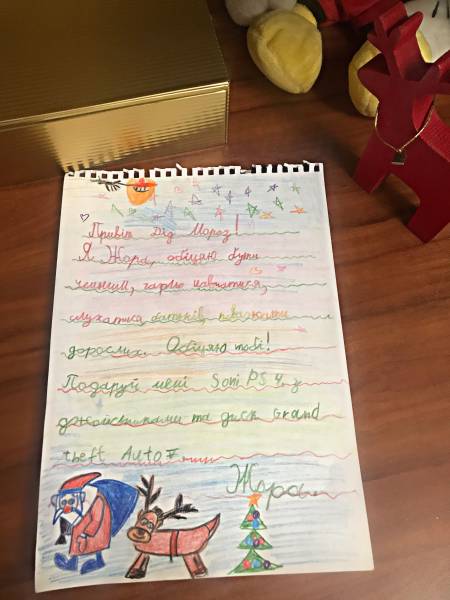 Привіт Дід Мороз!
Я Жора, обіцяю бути
чемним, гарно навчатися,
слухатися батьків, поважати
дорослих. Обіцяю тобі!
Подаруй мені Soni PS 4 з
джойстиками та диск Grand
theft Auto V.
Жора